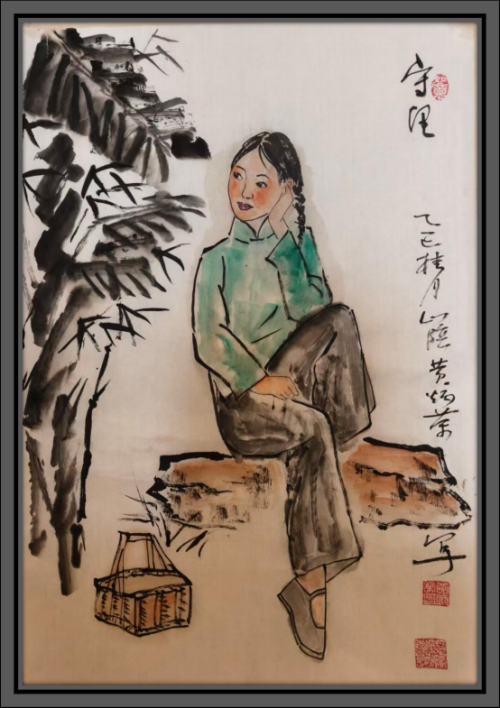 守望
乙巳桂月山陰黄炳荣写